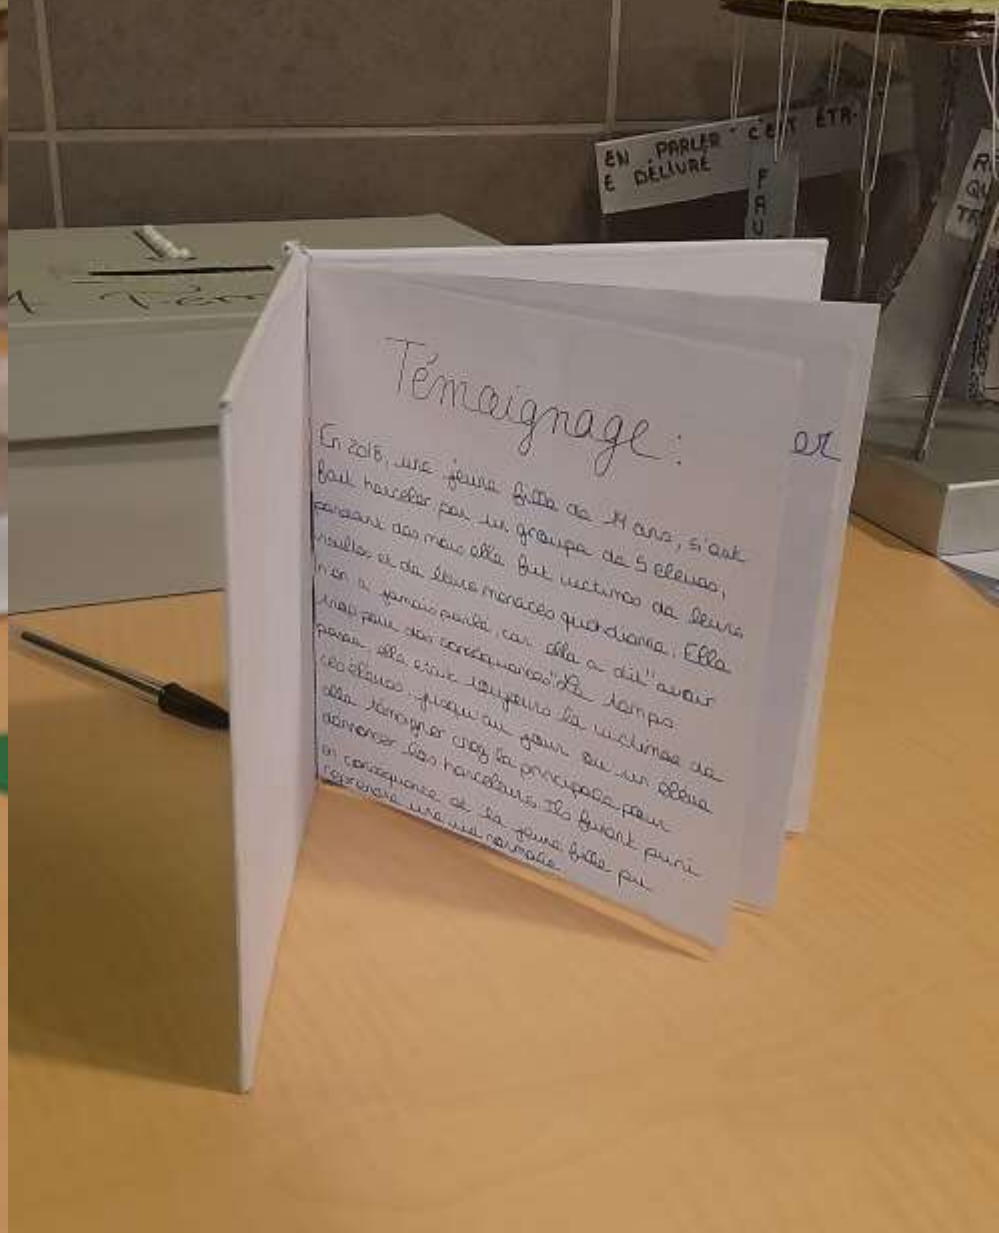 EN PARLER C'EST ÊTR-
E DÉLIVRÉ
Témoignage :
En 2018, une jeune fille de 14 ans, s'est
fait harceler par un groupe de 5 eleves,
pendant des mois elle fut victimes de leurs
insultes et de leurs menaces quotidienne. Elle
n'en a jamais parlé, car elle a dit "avoir
trop peur des conséquences" Le temps
passe elle était toujours la victimes de
ces élèves. jusqu'au jour ou un élève
alla témoigner chez la principale pour
dénoncer les harceleurs. Ils furent puni
en conséquence et la jeune fille pu
reprendre une vie normale.
er